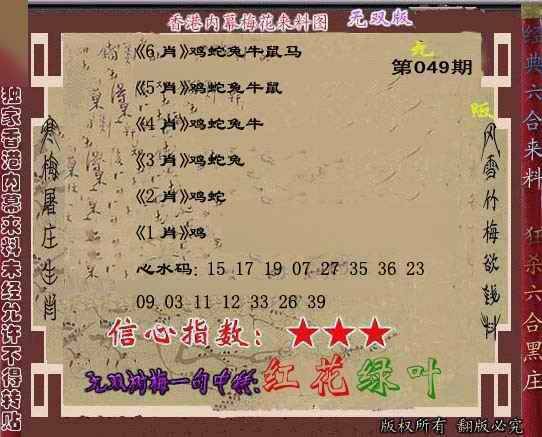 香港内幕梅花来料图 无双版
《6 肖》鸡蛇兔牛鼠马
第049期
《5 肖》鸡蛇兔牛鼠
《4 肖》鸡蛇兔牛
《3 肖》鸡蛇兔
《2 肖》鸡蛇
《1 肖》鸡
心水码: 15 17 19 07 27 35 36 23
09 03 11 12 33 26 39
信心指数: ★★★
红花绿叶
独家香港内幕来料未经允许不得转贴
寒梅屠庄生肖
风雪竹梅欲钱料
经典六合来料 狂杀六合黑庄
版权所有 翻版必究